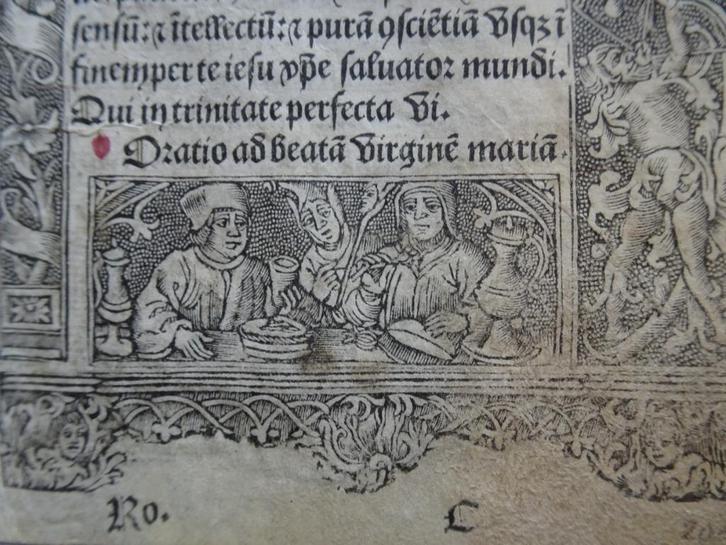 sensū: ⁊ ītellectū: ⁊ purā ꝯsciētiā vsqꝫ ī
finem per te iesu xp̄e saluator mundi.
Qui in trinitate perfecta vi.
Oratio ad beatā virginē mariā.
Ro.
C